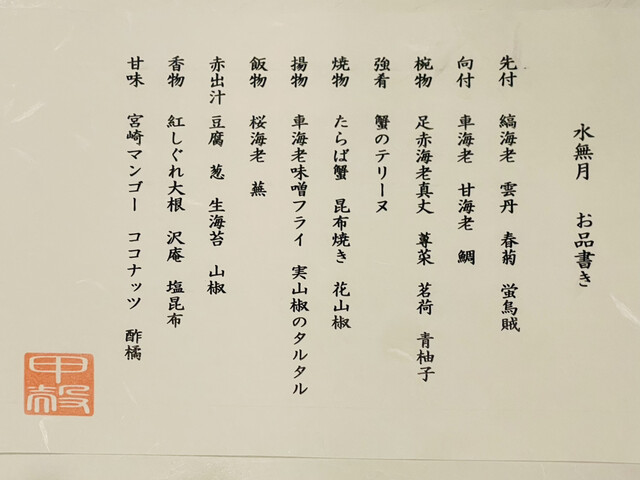 水無月　お品書き
先付　縞海老　雲丹　春菊　蛍烏賊
向付　車海老　甘海老　鯛
椀物　足赤海老真丈　蓴菜　茗荷　青柚子
強肴　蟹のテリーヌ
焼物　たらば蟹　昆布焼き　花山椒
揚物　車海老味噌フライ　実山椒のタルタル
飯物　桜海老　蕪
赤出汁　豆腐　葱　生海苔　山椒
香物　紅しぐれ大根　沢庵　塩昆布
甘味　宮崎マンゴー　ココナッツ　酢橘
甲殻